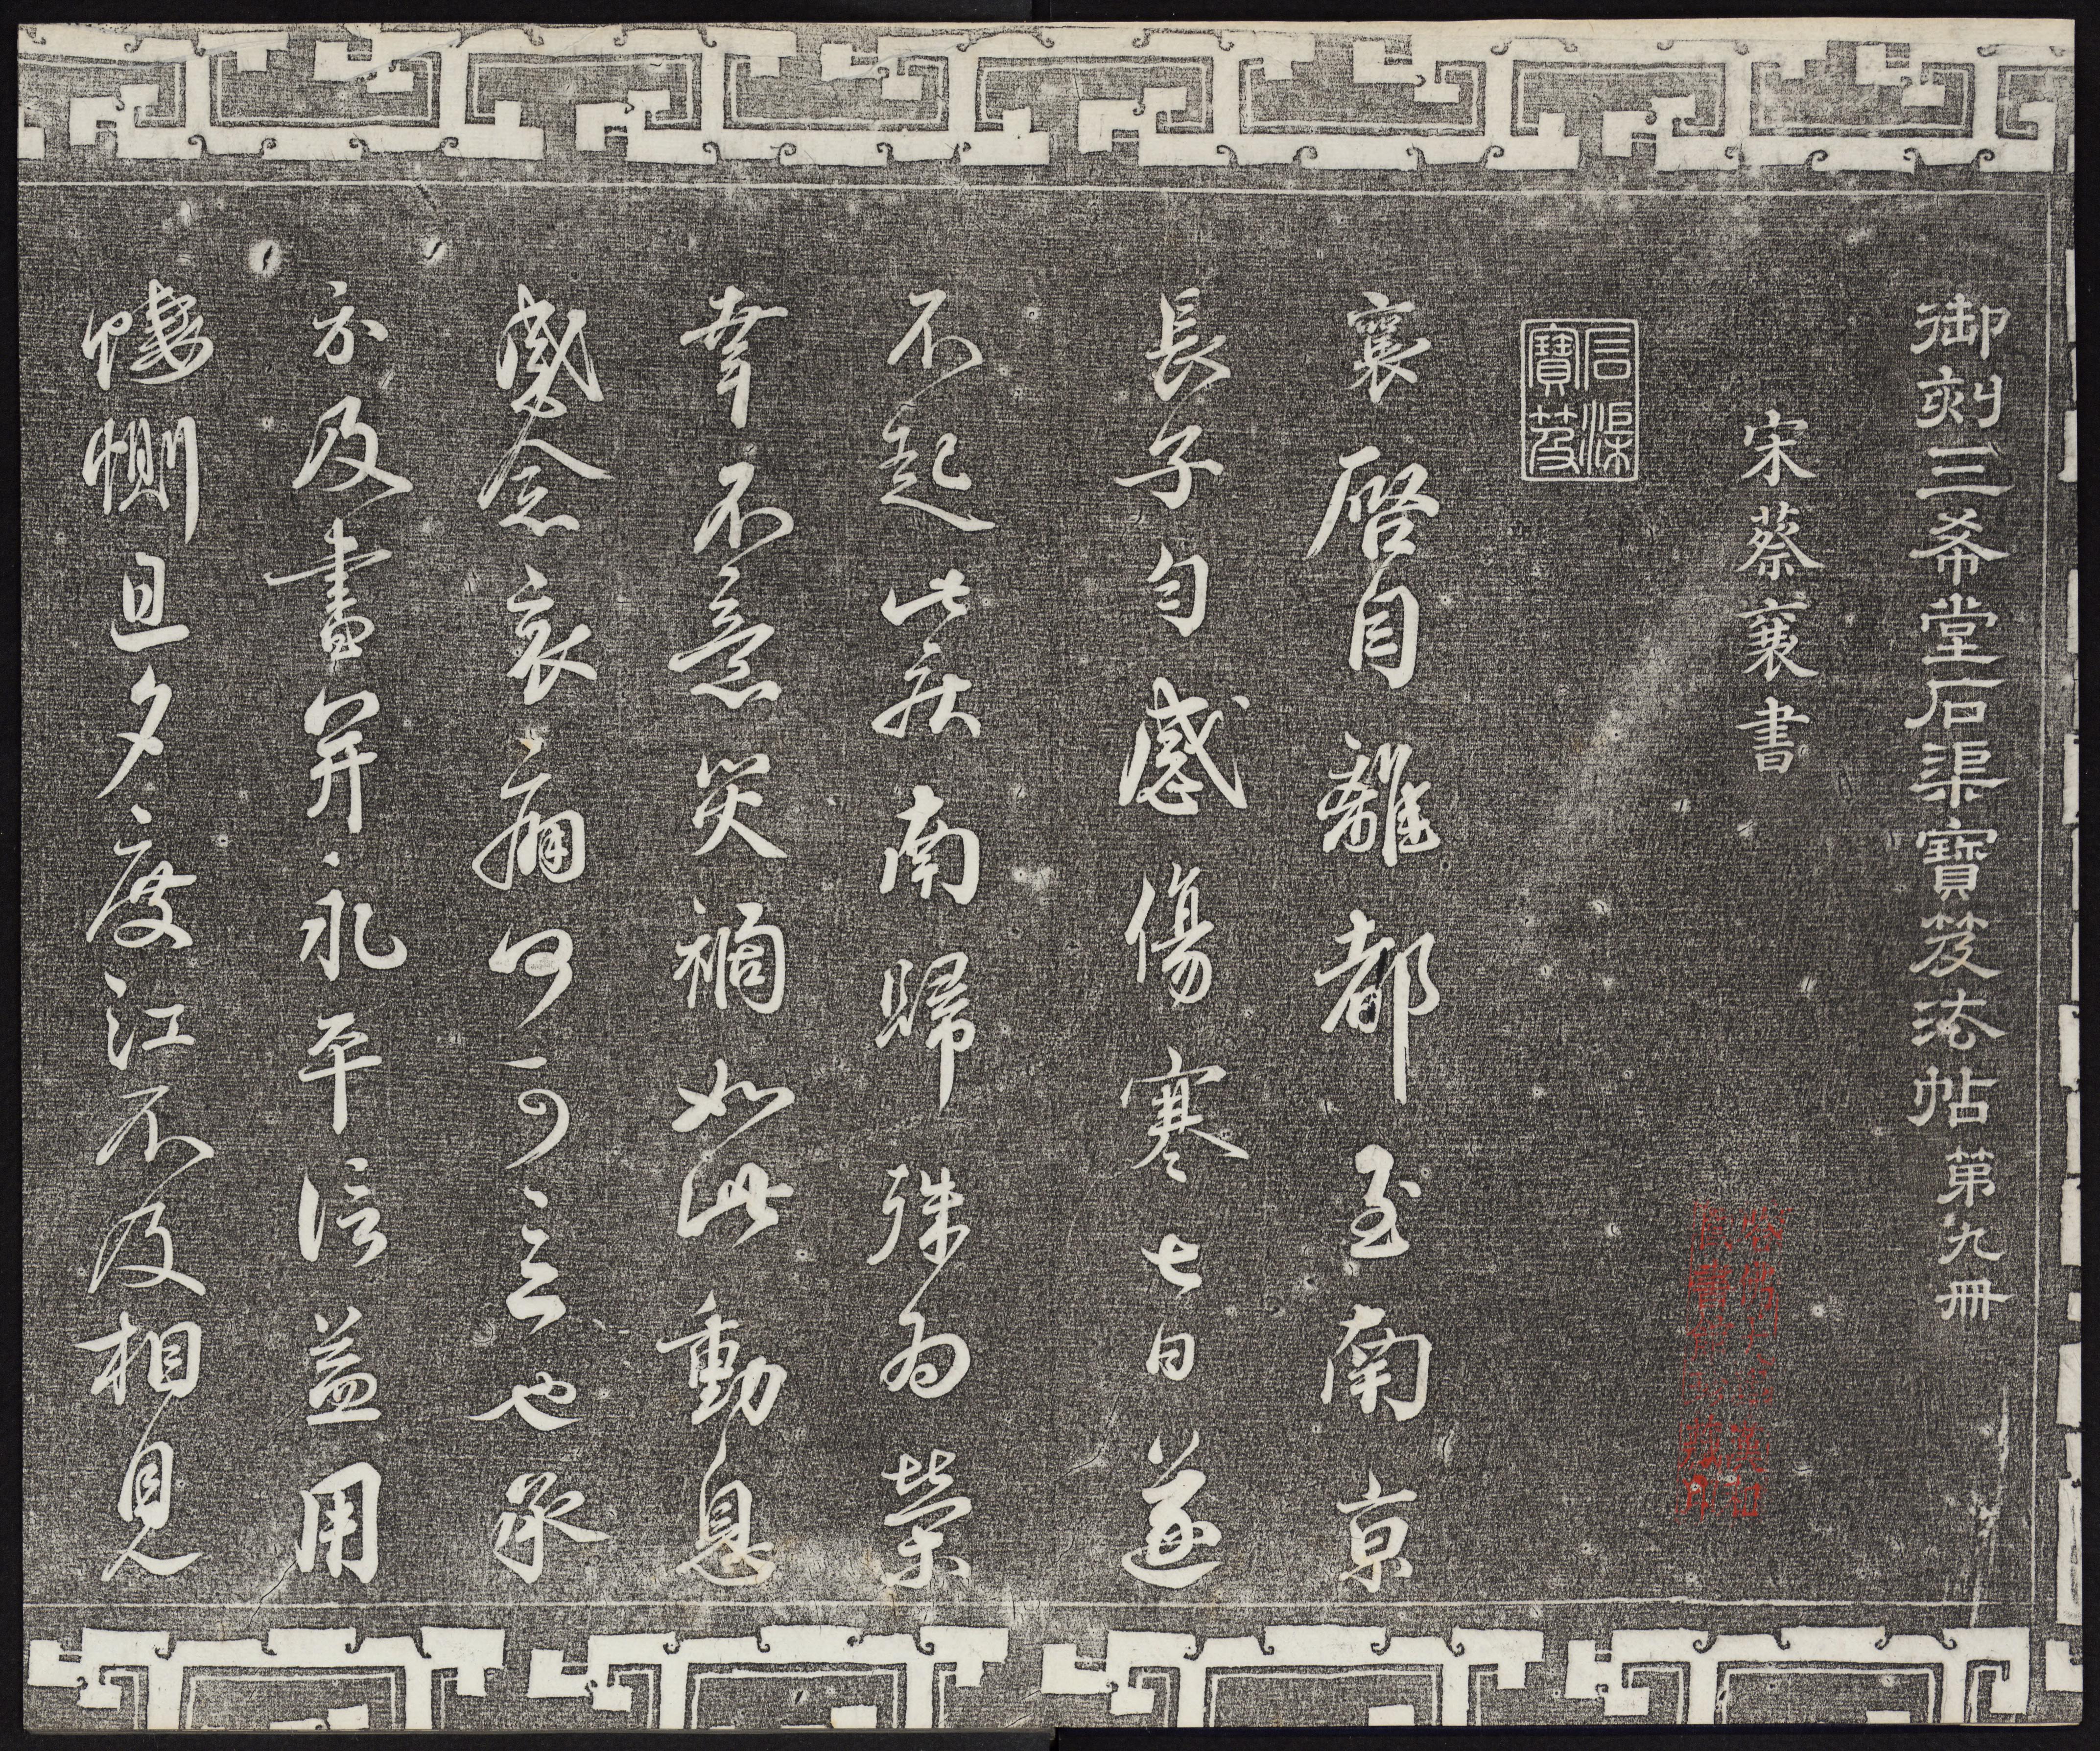 御刻三希堂石渠寶笈法帖第九冊
宋蔡襄書
石渠
寶笈
襄啓自離都至南京
長子勻感傷寒七日遂
不起此疾南歸殊為榮
幸不意災禍如此動息
感念哀痛何可言也承
示及書并永平信益用
悽惻旦夕度江不及相見